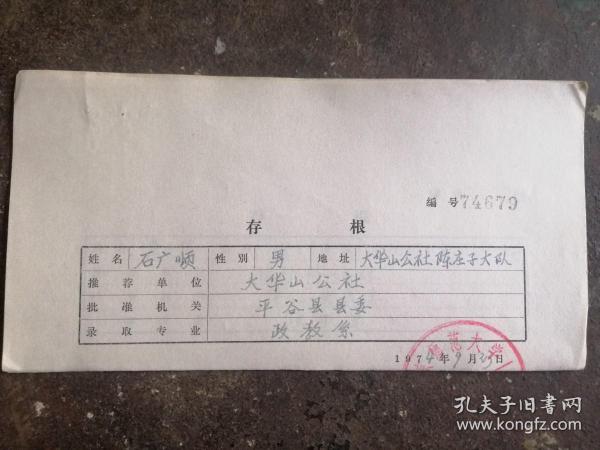 编号74679
存根
姓名 石广顺 性别 男 地址 大华山公社陈庄子大队
推荐单位 大华山公社
批准机关 平谷县县委
录取专业 政教系
范大学
1974年9月25日
孔夫子旧书网
www.kongfz.com